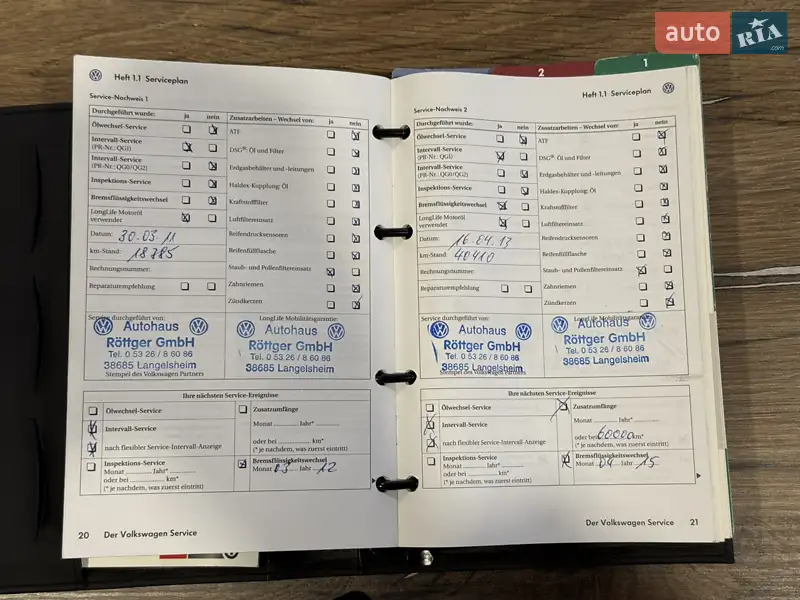 auto RIA .com
2
1
Heft 1.1 Serviceplan
Service-Nachweis 1
Durchgeführt wurde: ja nein
Ölwechsel-Service
Intervall-Service
(PR-Nr.: QG1)
Intervall-Service
(PR-Nr.: QG0/QG2)
Inspektions-Service
Bremsflüssigkeitswechsel
LongLife Motoröl
verwendet
Datum: 30.03.11
km-Stand: 18785
Rechnungsnummer:
Reparaturempfehlung
Zusatzarbeiten – Wechsel von: ja nein
ATF
DSG®: Öl und Filter
Erdgasbehälter und -leitungen
Haldex-Kupplung: Öl
Kraftstofffilter
Luftfiltereinsatz
Reifendrucksensoren
Reifenfüllflasche
Staub- und Pollenfiltereinsatz
Zahnriemen
Zündkerzen
Service durchgeführt von:
Autohaus
Röttger GmbH
Tel. 0 53 26 / 8 60 86
38685 Langelsheim
Stempel des Volkswagen Partners
LongLife Mobilitätsgarantie:
Autohaus
Röttger GmbH
Tel. 0 53 26 / 8 60 86
38685 Langelsheim
Ihre nächsten Service-Ereignisse
Ölwechsel-Service
Intervall-Service
nach flexibler Service-Intervall-Anzeige
Inspektions-Service
Monat Jahr*
oder bei km*
(* je nachdem, was zuerst eintritt)
Zusatzumfänge
Monat Jahr*
oder bei km*
(* je nachdem, was zuerst eintritt)
Bremsflüssigkeitswechsel
Monat 03 Jahr 12
20 Der Volkswagen Service
Heft 1.1 Serviceplan
Service-Nachweis 2
Durchgeführt wurde: ja nein
Ölwechsel-Service
Intervall-Service
(PR-Nr.: QG1)
Intervall-Service
(PR-Nr.: QG0/QG2)
Inspektions-Service
Bremsflüssigkeitswechsel
LongLife Motoröl
verwendet
Datum: 16.04.13
km-Stand: 40410
Rechnungsnummer:
Reparaturempfehlung
Zusatzarbeiten – Wechsel von: ja nein
ATF
DSG®: Öl und Filter
Erdgasbehälter und -leitungen
Haldex-Kupplung: Öl
Kraftstofffilter
Luftfiltereinsatz
Reifendrucksensoren
Reifenfüllflasche
Staub- und Pollenfiltereinsatz
Zahnriemen
Zündkerzen
Service durchgeführt von:
Autohaus
Röttger GmbH
Tel. 0 53 26 / 8 60 86
38685 Langelsheim
Stempel des Volkswagen Partners
LongLife Mobilitätsgarantie:
Autohaus
Röttger GmbH
Tel. 0 53 26 / 8 60 86
38685 Langelsheim
Ihre nächsten Service-Ereignisse
Ölwechsel-Service
Intervall-Service
nach flexibler Service-Intervall-Anzeige
Inspektions-Service
Monat Jahr*
oder bei km*
(* je nachdem, was zuerst eintritt)
Zusatzumfänge
Monat Jahr*
oder bei 60000 km*
(* je nachdem, was zuerst eintritt)
Bremsflüssigkeitswechsel
Monat 04 Jahr 15
Der Volkswagen Service 21